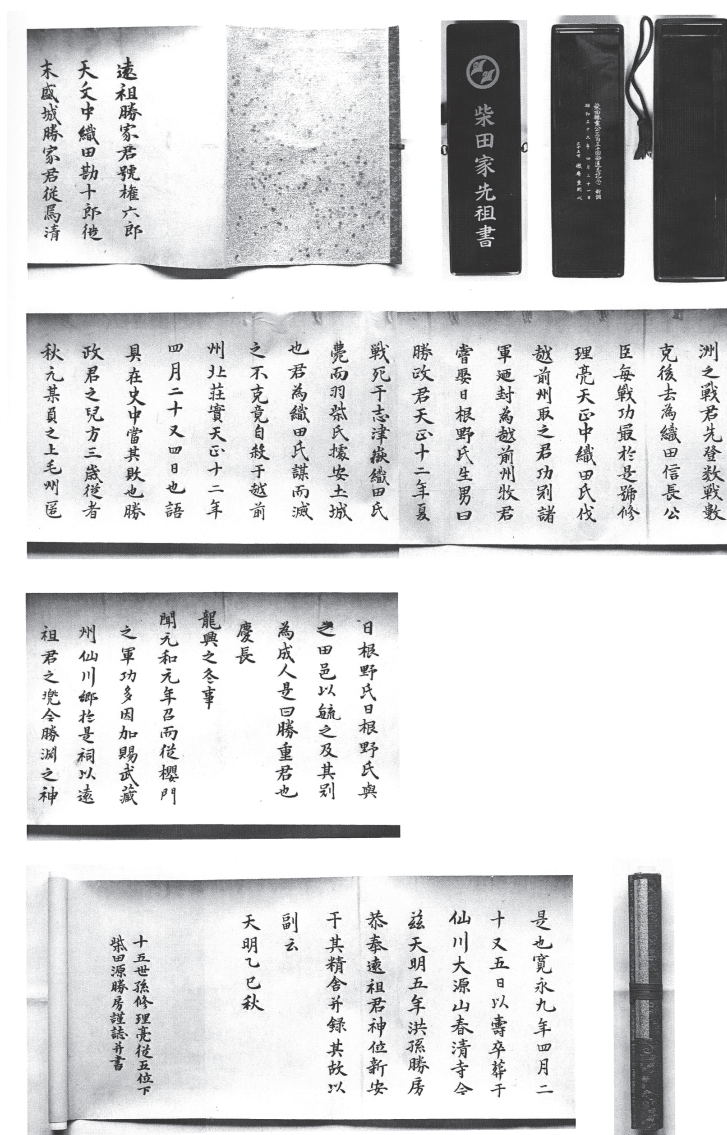 遠祖勝家君號權六郎
天文中織田勘十郎從
末盛城勝家君從焉清
柴田家先祖書
洲之戰君先登数戰數
克後去為織田信長公
臣每戰功最於是號修
理亮天正中織田氏伐
越前州取之君功別諸
軍廼封為越前州牧君
嘗娶日根野氏生男曰
勝政君天正十二年夏
戰死于志津嶽織田氏
薨而羽柴氏據安土城
也君為織田氏謀而滅
之不克竟自殺于越前
州北莊實天正十二年
四月二十又四日也語
具在史中當其敗也勝
政君之兒方三歲從者
秋元某負之上毛州邑
日根野氏日根野氏與
之田邑以毓之及其別
為成人是曰勝重君也
慶長
龍興之冬事
聞元和元年召而從櫻門
之軍功多因加賜武蔵
州仙川鄉於是祠以遠
祖君之兜今勝淵之神
是也寛永九年四月二
十又五日以壽卒葬于
仙川大源山春清寺今
茲天明五年洪孫勝房
恭奉遠祖君神位新安
于其精舎并録其故以
副云
天明乙巳秋
十五世孫修理亮從五位下
柴田源勝房謹誌并書